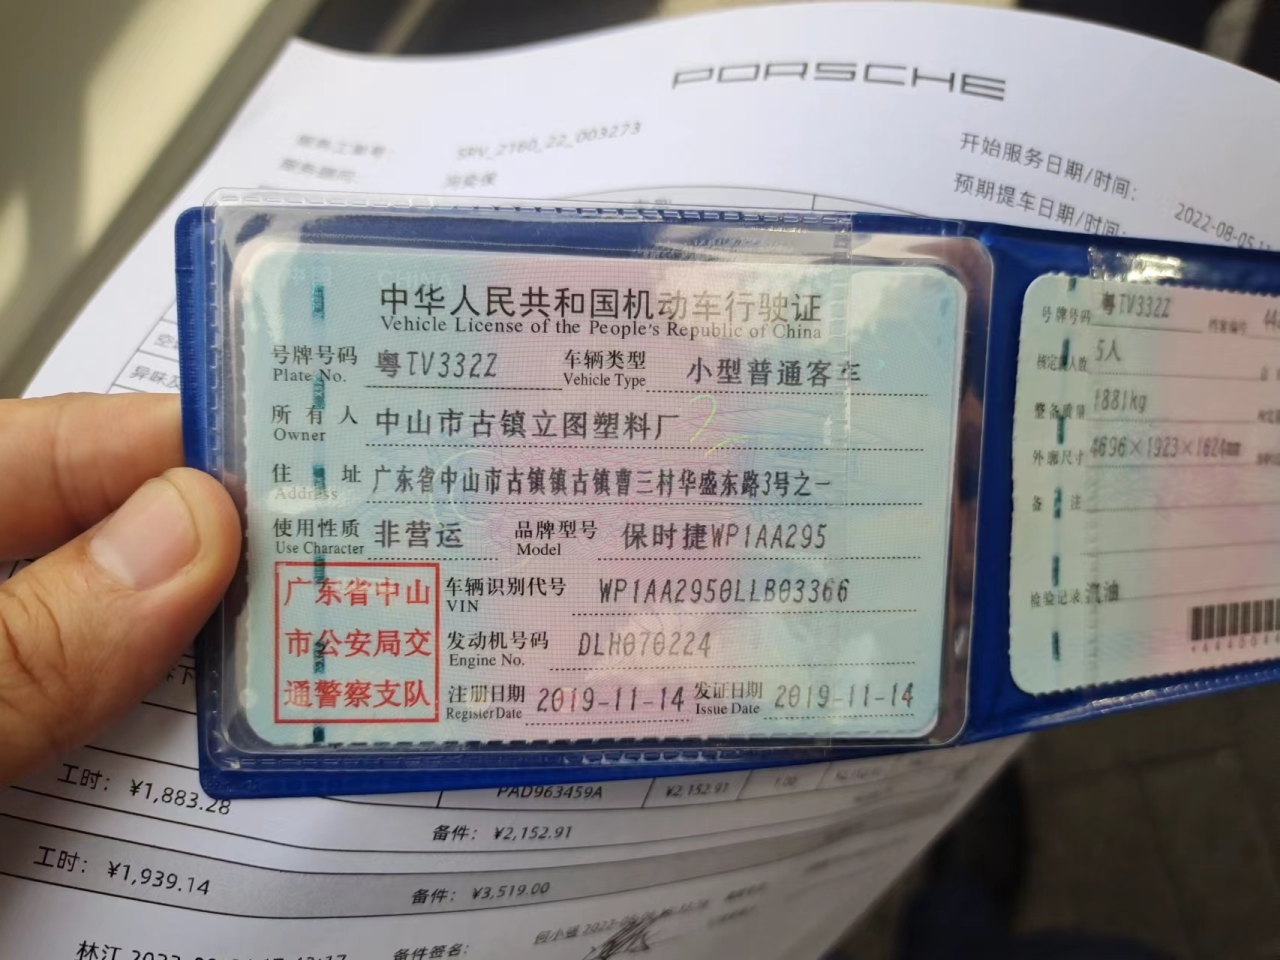 PORSCHE
服务工单号: SRV_2160_22_003273
服务顾问:
开始服务日期/时间: 2022-08-05
预期提车日期/时间:
中华人民共和国机动车行驶证
Vehicle License of the People's Republic of China
号牌号码 粤TV332Z 车辆类型 小型普通客车
Plate No. Vehicle Type
所有人 中山市古镇立图塑料厂
Owner
住址 广东省中山市古镇镇古镇曹三村华盛东路3号之一
Address
使用性质 非营运 品牌型号 保时捷WP1AA295
Use Character Model
广东省中山
市公安局交
通警察支队
车辆识别代号 WP1AA2950LLB03366
VIN
发动机号码 DLH070224
Engine No.
注册日期 2019-11-14 发证日期 2019-11-14
Register Date Issue Date
号牌号码 粤TV332Z 档案编号 44
核定载人数 5人
整备质量 1881kg
外廓尺寸 4696×1923×1624mm
备注
检验记录 汽油
工时: ¥1,883.28
PAD963459A ¥2,152.91 1.00
备件: ¥2,152.91
工时: ¥1,939.14
备件: ¥3,519.00
林江
备件签名: